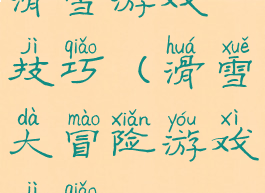 滑雪游戏
jì qiǎo huá xuě
技巧（滑雪
dà mào xiǎn yóu xì
大冒险游戏
jì qiǎo